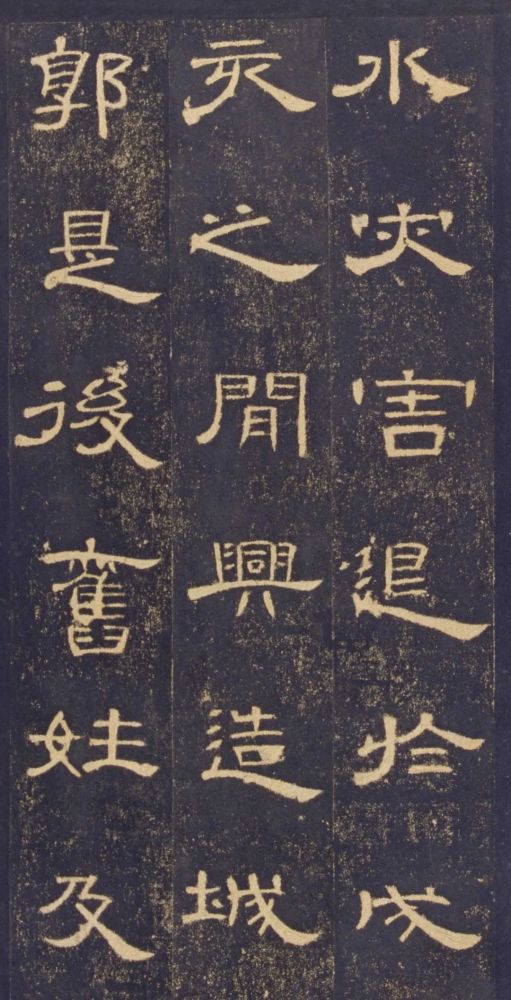 水灾害退於戌
亥之閒興造城
郭是後舊姓及